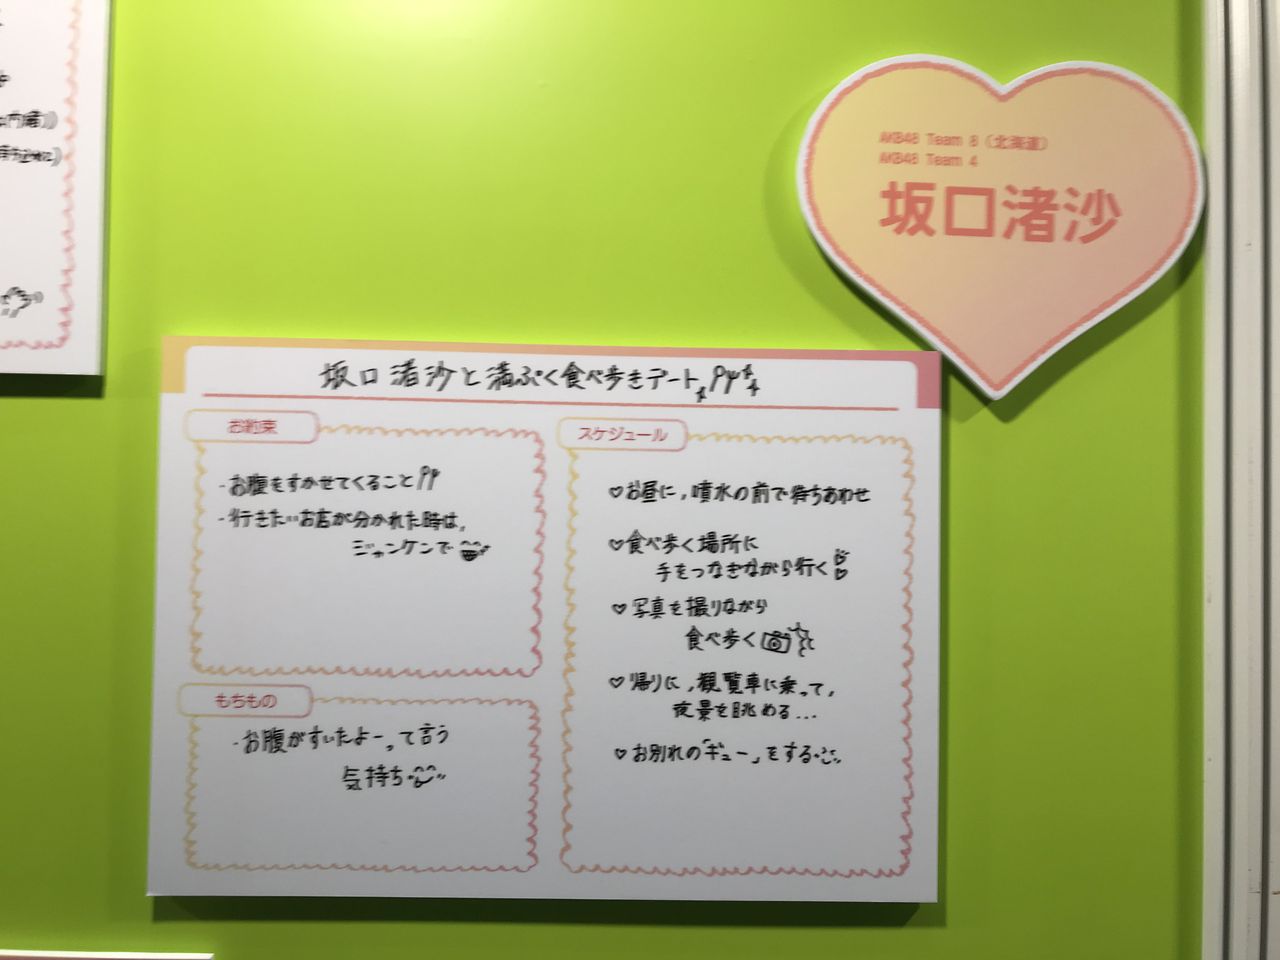 AKB48 Team 8（北海道）
AKB48 Team 4
坂口渚沙
坂口渚沙と満ぷく食べ歩きデート
お約束
・お腹をすかせてくること
・行きたいお店が分かれた時は、
ジャンケンで
もちもの
・お腹がすいたよーって言う
気持ち
スケジュール
♡お昼に、噴水の前で待ちあわせ
♡食べ歩く場所に
手をつなぎながら行く
♡写真を撮りながら
食べ歩く
♡帰りに、観覧車に乗って、
夜景を眺める...
♡お別れの「ギュー」をする